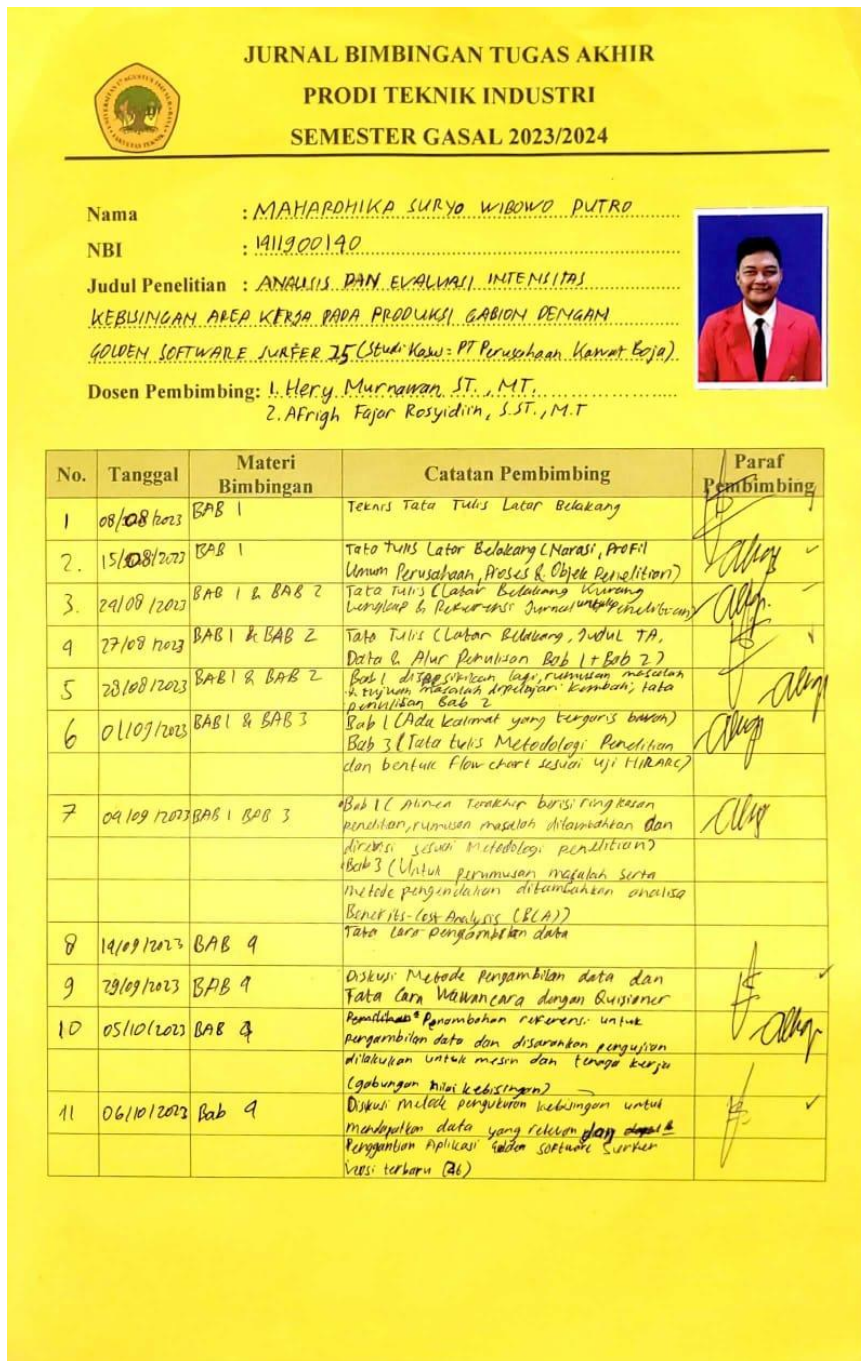 JURNAL BIMBINGAN TUGAS AKHIR
PRODI TEKNIK INDUSTRI
SEMESTER GASAL 2023/2024
Nama : MAHARDHIKA SURYO WIBOWO PUTRO
NBI : 1411900140
Judul Penelitian : ANALISIS DAN EVALUASI INTENSITAS
KEBISINGAN AREA KERJA PADA PRODUKSI GABION DENGAN
GOLDEN SOFTWARE SURFER 25 (Studi Kasus: PT Perusahaan Kawat Baja)
Dosen Pembimbing: 1. Hery Murnawan, ST., MT.
2. Afrigh Fajar Rosyidiin, S.ST., M.T
No. Tanggal Materi Bimbingan Catatan Pembimbing Paraf Pembimbing
1 08/08/2023 BAB 1 Teknis Tata Tulis Latar Belakang
2. 15/08/2023 BAB 1 Tata tulis Latar Belakang (Narasi, Profil
Umum Perusahaan, Proses & Objek Penelitian)
3. 24/08/2023 BAB 1 & BAB 2 Tata Tulis (Latar Belakang Kurang
Lengkap & Referensi Jurnal untuk Penelitian)
4 27/08/2023 BAB 1 & BAB 2 Tata Tulis (Latar Belakang, Judul TA,
Data & Alur Penulisan Bab 1 + Bab 2)
5 28/08/2023 BAB 1 & BAB 2 Bab 1 lagi, rumusan masalah
& tujuan masalah dipelajari kembali, tata
penulisan Bab 2
6 01/09/2023 BAB 1 & BAB 3 Bab 1 (Ada kalimat yang tergaris bawah)
Bab 3 (Tata tulis Metodologi Penelitian
dan bentuk Flow chart sesuai uji HIRARC)
7 04/09/2023 BAB 1 BAB 3 Bab 1 (Alinea Terakhir berisi ringkasan
penelitian, rumusan masalah ditambahkan dan
direvisi sesuai Metodologi penelitian)
Bab 3 (Untuk perumusan masalah serta
metode pengendalian ditambahkan analisa
Benefits-Cost Analysis (BCA))
8 14/09/2023 BAB 4 Tata cara pengambilan data
9 29/09/2023 BAB 4 Diskusi Metode pengambilan data dan
Tata Cara Wawancara dengan Quisioner
10 05/10/2023 BAB 4 Penambahan referensi untuk
pengambilan data dan disarankan pengujian
dilakukan untuk mesin dan tenaga kerja
(gabungan nilai kebisingan)
11 06/10/2023 Bab 4 Diskusi Metode pengukuran kebisingan untuk
mendapatkan data yang relevan dan
Penggantian Aplikasi Golden Software Surfer
versi terbaru (26)